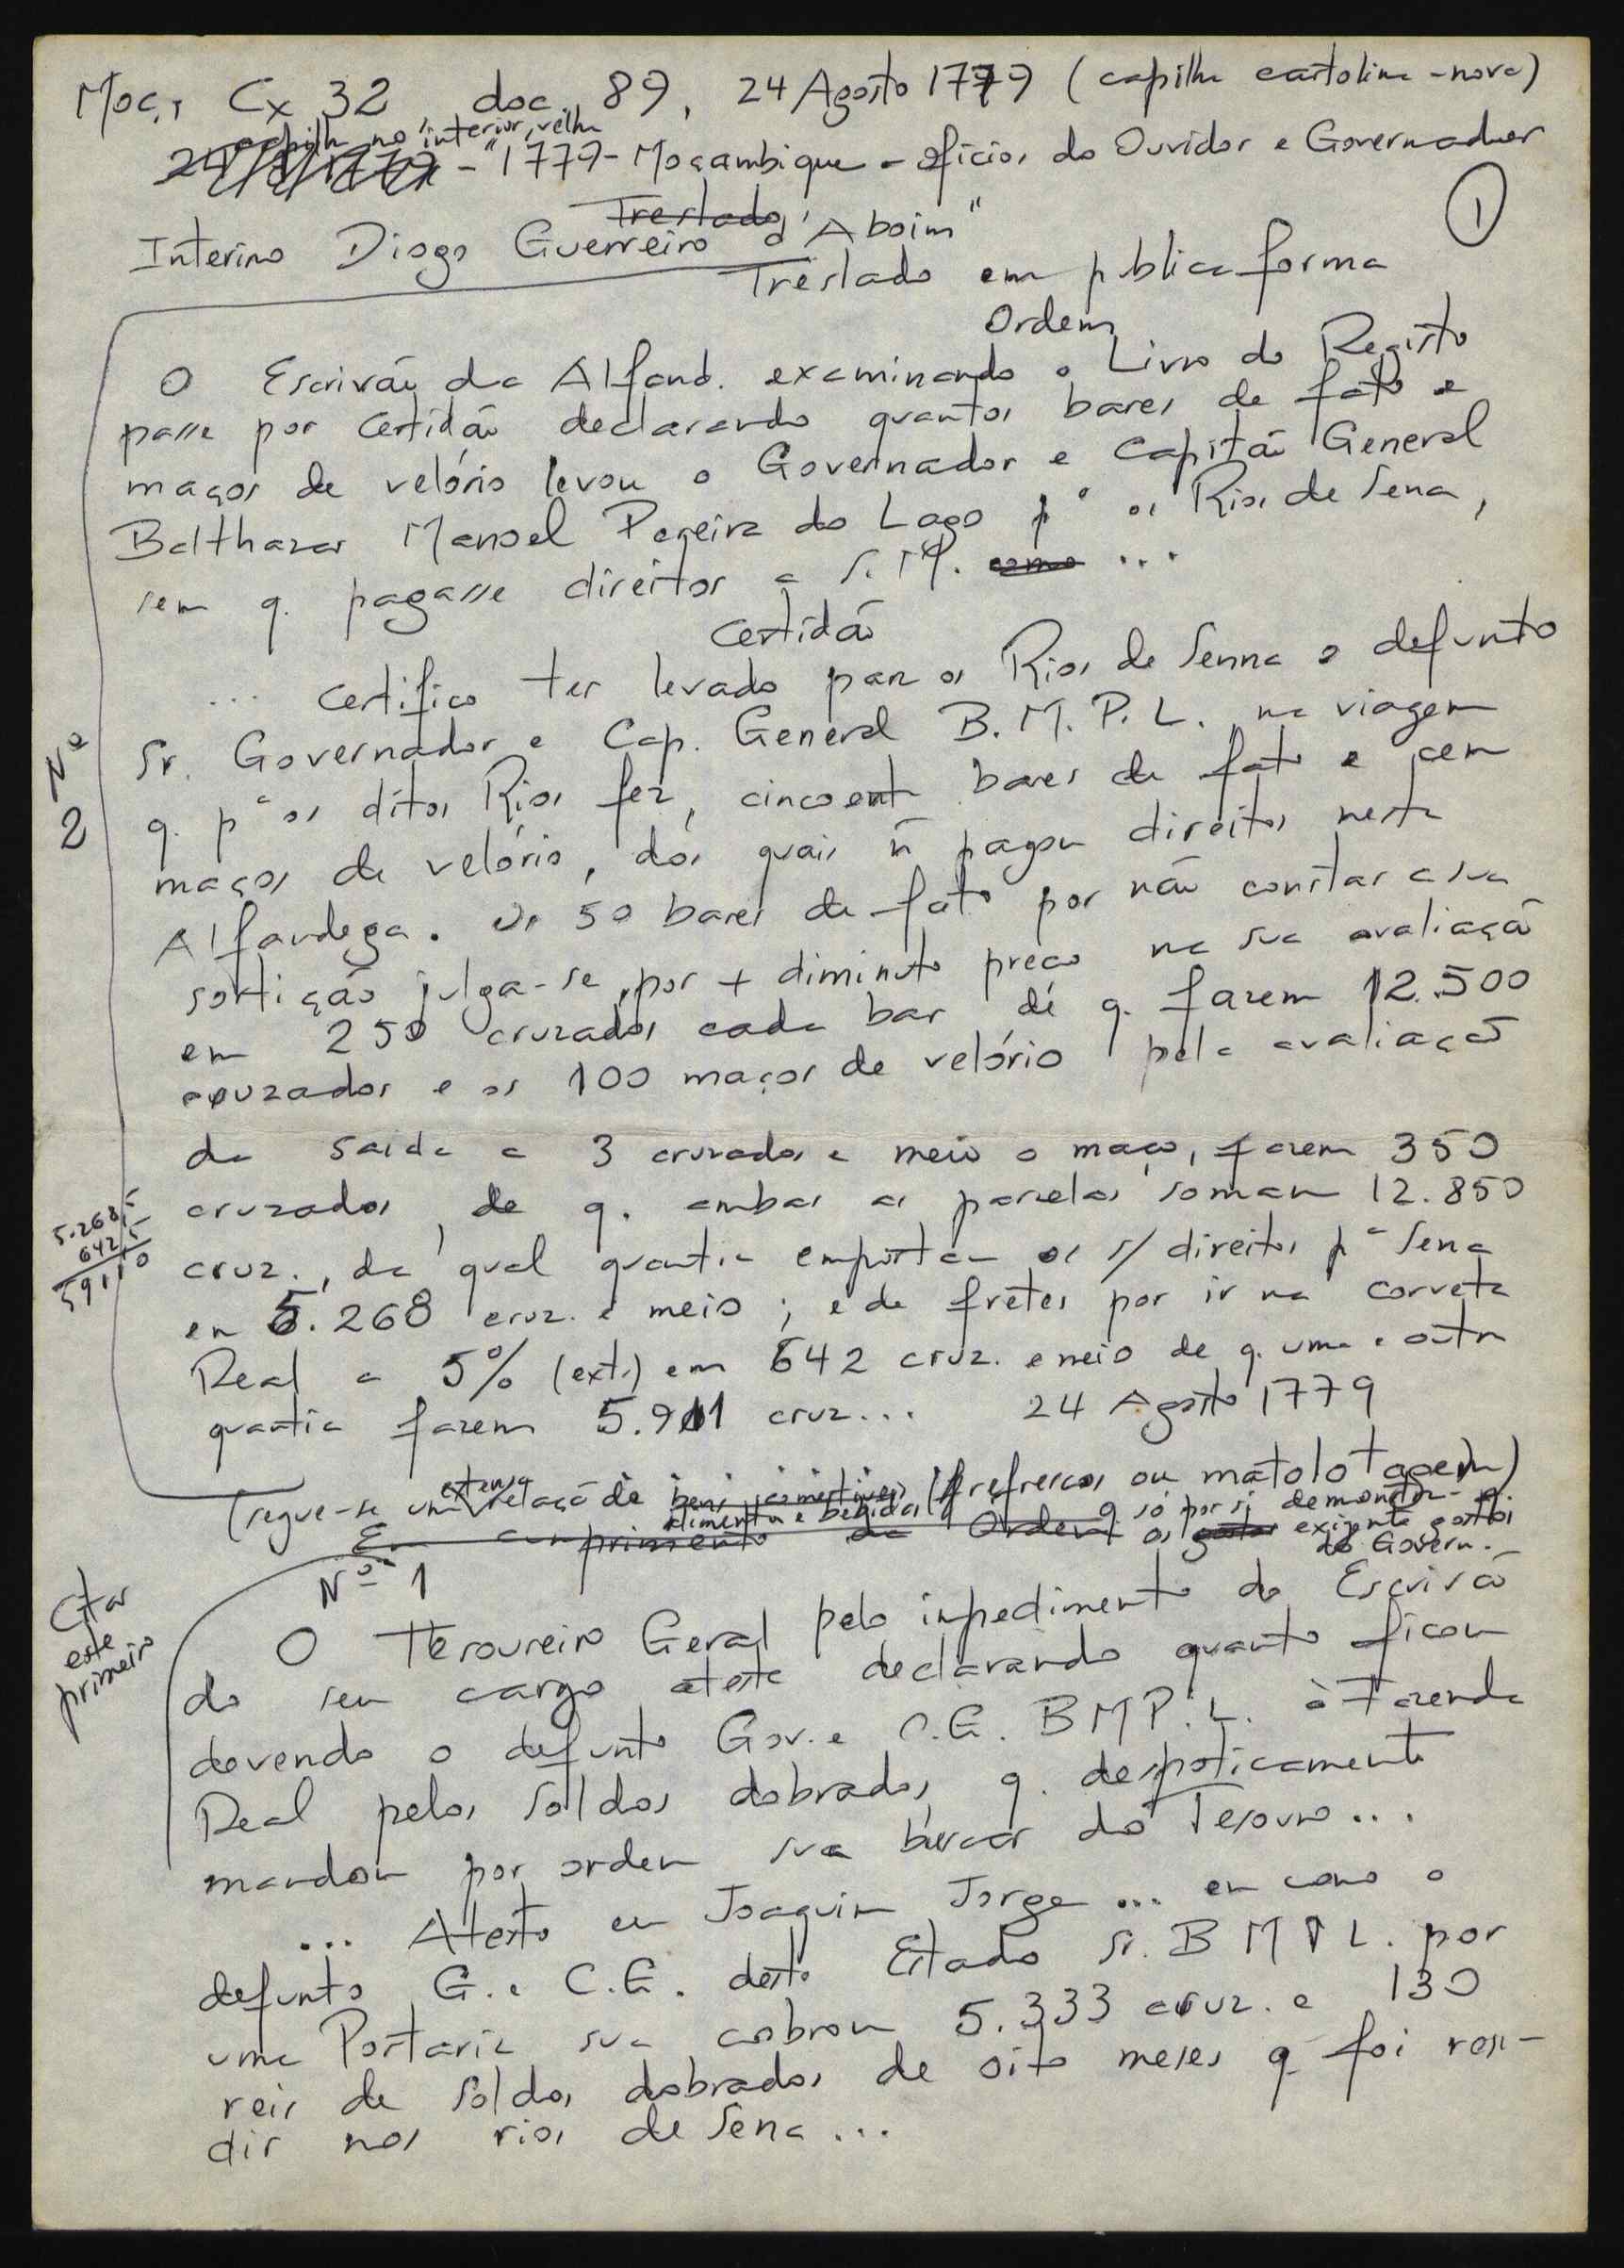 Moç., Cx 32 doc. 89, 24 Agosto 1779 (capilha cartolina-nova)
capilha no interior, velha
- "1779 - Moçambique - ofícios do Ouvidor e Governador
Trestado
Interino Diogo Guerreiro d'Aboim"
①
Treslado em publica forma
Ordem
O Escrivão da Alfand. examinando o Livro do Registo
passe por Certidão declarando quantos bares de fato e
maços de velório levou o Governador e Capitão General
Balthazar Manoel Pereira do Lago pª os Rios de Sena,
sem q. pagasse direitos a S. M. como ...
Certidão
... Certifico ter levado para os Rios de Senna o defunto
Sr. Governador e Cap. General B. M. P. L. na viagem
q. pª os ditos Rios fez, cincoenta bares de fato e cem
maços de velório, dos quais ñ pagou direitos nesta
Alfandega. Os 50 bares de fato por não constar a sua
sortição julga-se, por + diminuto preço na sua avaliação
em 250 cruzados cada bar de q. fazem 12.500
cruzados e os 100 maços de velório pela avaliação
da saida a 3 cruzados e meio o maço, fazem 350
cruzados, de q. ambas as parcelas somam 12.850
cruz., da qual quantia emportam os s/ direitos pª Sena
em 5.268 cruz. e meio; e de fretes por ir na corveta
Real a 5% (ext.) em 642 cruz. e meio de q. uma e outra
quantia fazem 5.911 cruz... 24 Agosto 1779
Nº
2
5.268,5
642,5
5911,0
(segue-se uma extensa relação de bens comestíveis (refrescos ou matolotagem)
alimentos e bebidas q só por si demonstra
Em cumprimento da Ordem os gastos exigente gastos
do Govern.
Nº 1
Citar
este
primeiro
O Tesoureiro Geral pelo impedimento do Escrivão
do seu cargo ateste declarando quanto ficou
devendo o defunto Gov. e C.G. B M P. L. à Fazenda
Real pelos soldos dobrados q. despoticamente
mandou por ordem sua buscar do Tesouro...
... Atesto eu Joaquim Jorge ... em como o
defunto G. e C.G. deste Estado Sr. B M P L. por
uma Portaria sua cobrou 5.333 cruz. e 130
reis de soldos dobrados de oito meses q foi resi-
dir nos rios de Sena ...